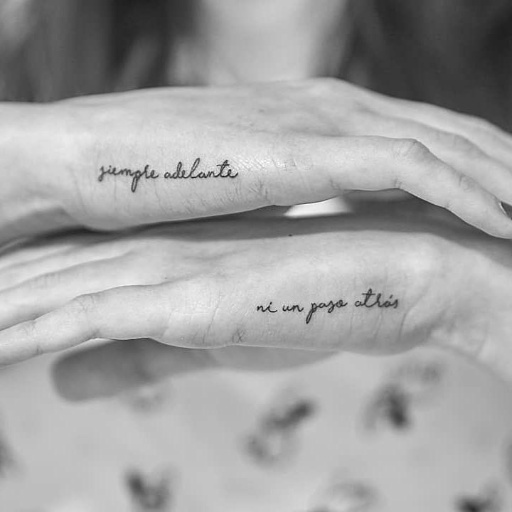 siempre adelante
ni un paso atrás